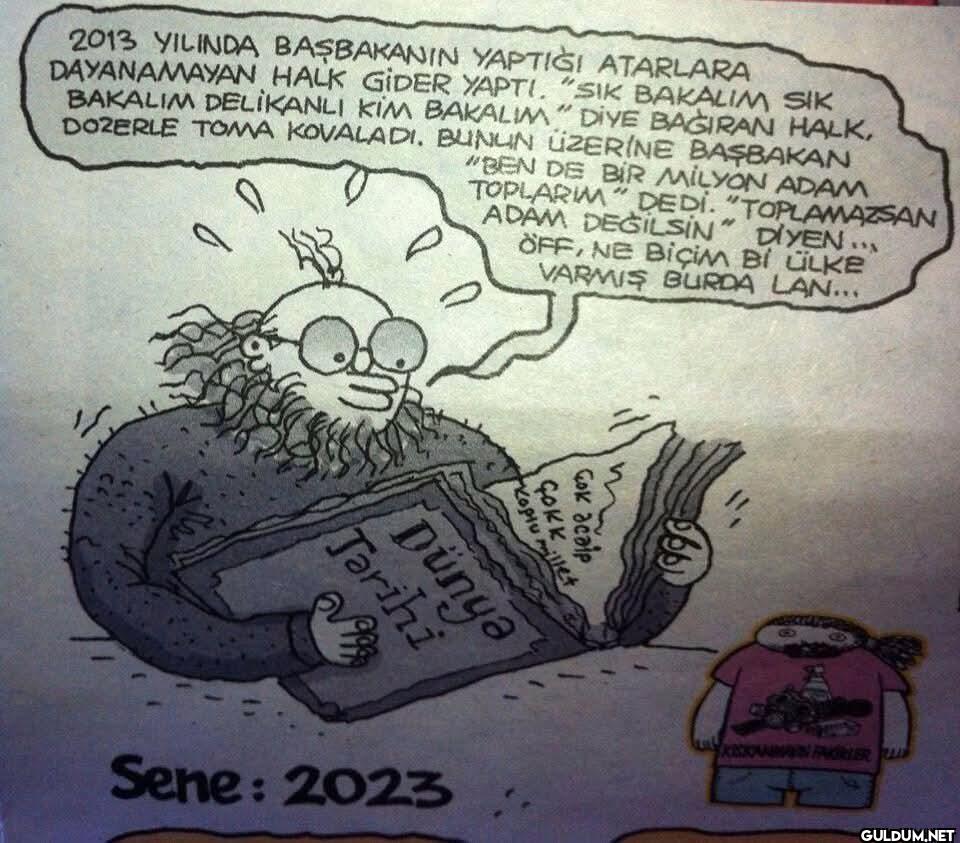 2013 YILINDA BAŞBAKANIN YAPTIĞI ATARLARA
DAYANAMAYAN HALK GİDER YAPTI. "SIK BAKALIM SIK
BAKALIM DELİKANLI KİM BAKALIM" DİYE BAĞIRAN HALK,
DOZERLE TOMA KOVALADI. BUNUN ÜZERİNE BAŞBAKAN
"BEN DE BİR MİLYON ADAM
TOPLARIM" DEDİ. "TOPLAMAZSAN
ADAM DEĞİLSİN" DİYEN...
ÖFF, NE BİÇİM Bİ ÜLKE
VARMIŞ BURDA LAN...
Dünya
Tarihi
Çok acaip
ÇOKK
koplu millet
Sene: 2023
KISKANMAYIN FAKİRLER
GULDUM.NET